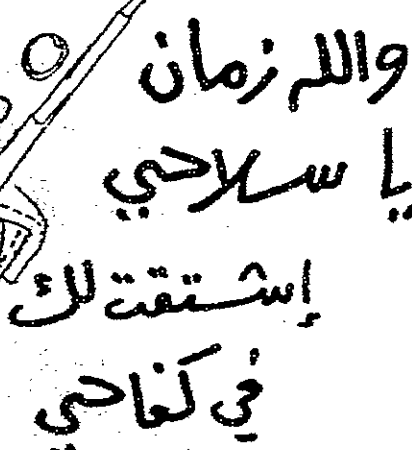 والله زمان
يا سلاحي
إشتقت لك
في كفاحي